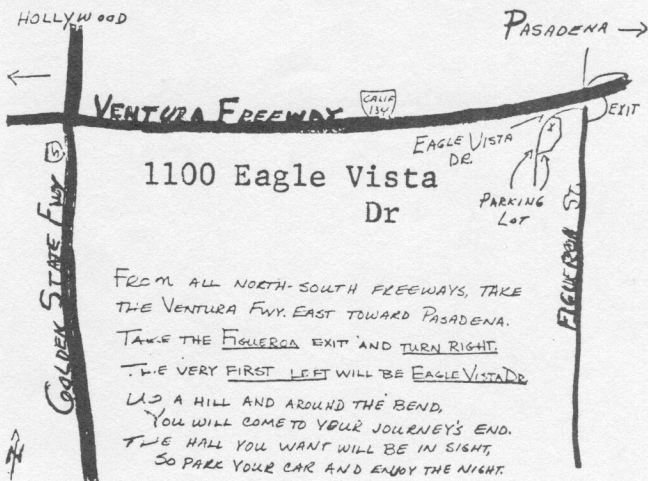 HOLLYWOOD
PASADENA
VENTURA FREEWAY
CALIF
134
EXIT
EAGLE VISTA
DR.
1100 Eagle Vista
Dr
PARKING
LOT
5
GOLDEN STATE FWY
FIGUEROA ST.
FROM ALL NORTH-SOUTH FREEWAYS, TAKE
THE VENTURA FWY. EAST TOWARD PASADENA.
TAKE THE FIGUEROA EXIT AND TURN RIGHT.
THE VERY FIRST LEFT WILL BE EAGLE VISTA DR
UP A HILL AND AROUND THE BEND,
YOU WILL COME TO YOUR JOURNEY'S END.
THE HALL YOU WANT WILL BE IN SIGHT,
SO PARK YOUR CAR AND ENJOY THE NIGHT.
N